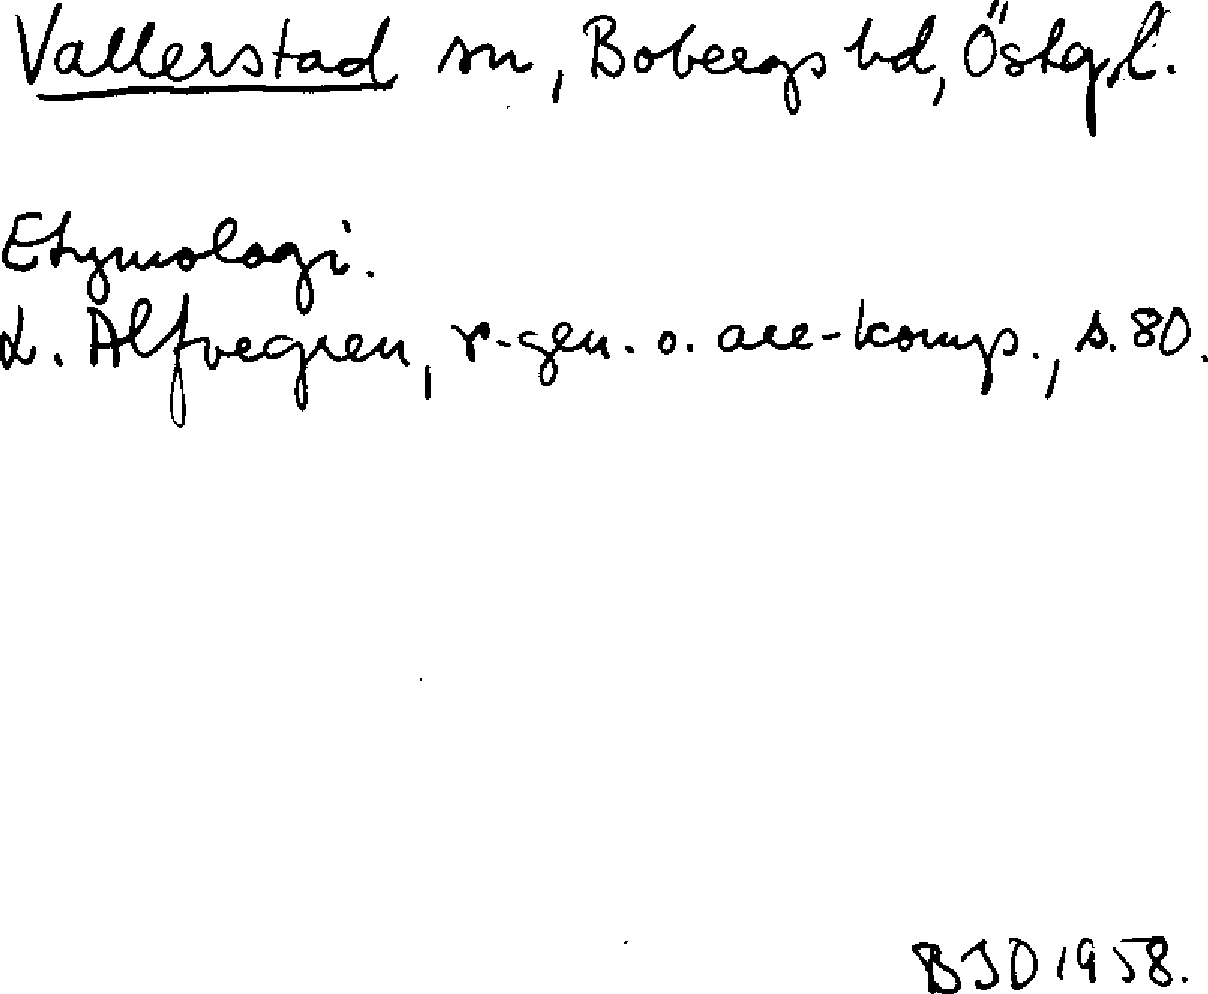 Vallerstad sn, Bobergs hd, Östg,l.
Etymologi.
L. Alfvegren, r-gen. o. are-komp., s. 80.
BJD 1958.